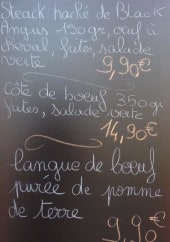 Steack haché de Black
Angus 150gr, œuf à
cheval, frites, salade
verte
9,90€
Côte de bœuf 350gr
frites, salade verte
14,90€
langue de bœuf
purée de pomme
de terre
9,90